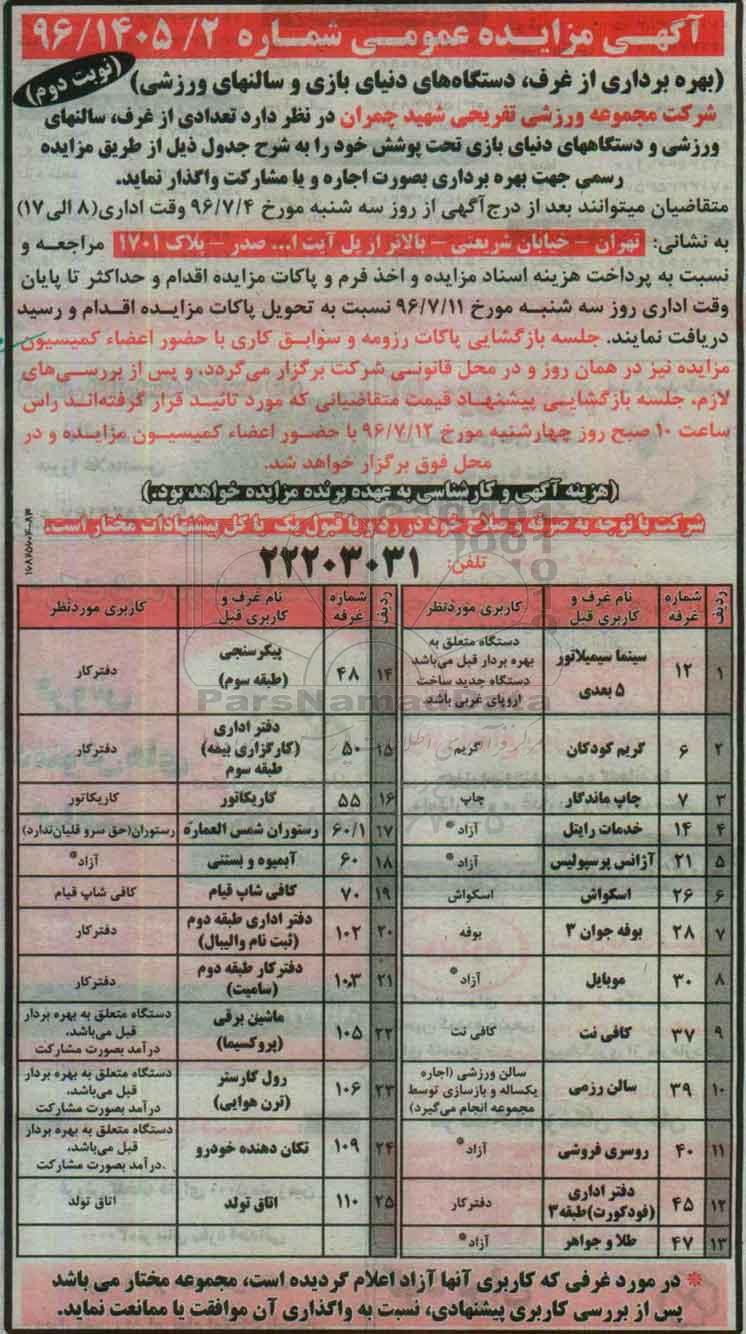 آگهی مزایده عمومی شماره ۲/ ۹۶/۱۴۰۵
(بهره برداری از غرف، دستگاه‌های دنیای بازی و سالنهای ورزشی)
(نوبت دوم)
شرکت مجموعه ورزشی تفریحی شهید چمران در نظر دارد تعدادی از غرف، سالنهای
ورزشی و دستگاههای دنیای بازی تحت پوشش خود را به شرح جدول ذیل از طریق مزایده
رسمی جهت بهره برداری بصورت اجاره و یا مشارکت واگذار نماید.
متقاضیان میتوانند بعد از درج آگهی از روز سه شنبه مورخ ۹۶/۷/۴ وقت اداری(۸ الی۱۷)
به نشانی: تهران – خیابان شریعتی – بالاتر از پل آیت ا... صدر – پلاک ۱۷۰۱ مراجعه و
نسبت به پرداخت هزینه اسناد مزایده و اخذ فرم و پاکات مزایده اقدام و حداکثر تا پایان
وقت اداری روز سه شنبه مورخ ۹۶/۷/۱۱ نسبت به تحویل پاکات مزایده اقدام و رسید
دریافت نمایند. جلسه بازگشایی پاکات رزومه و سوابق کاری با حضور اعضاء کمیسیون
مزایده نیز در همان روز و در محل قانونی شرکت برگزار می‌گردد، و پس از بررسی‌های
لازم، جلسه بازگشایی پیشنهاد قیمت متقاضیانی که مورد تائید قرار گرفته‌اند راس
ساعت ۱۰ صبح روز چهارشنبه مورخ ۹۶/۷/۱۲ با حضور اعضاء کمیسیون مزایده و در
محل فوق برگزار خواهد شد.
(هزینه آگهی و کارشناسی به عهده برنده مزایده خواهد بود.)
شرکت با توجه به صرفه و صلاح خود در رد و یا قبول یک یا کل پیشنهادات مختار است.
تلفن: ۲۲۲۰۳۰۳۱
ردیف شماره غرفه نام غرف و کاربری قبل کاربری موردنظر
۱ ۱۲ سینما سیمیلاتور ۵ بعدی دستگاه متعلق به بهره بردار قبل می‌باشد دستگاه جدید ساخت اروپای غربی باشد
۲ ۶ گریم کودکان گریم
۳ ۷ چاپ ماندگار چاپ
۴ ۱۴ خدمات رایتل آزاد*
۵ ۲۱ آژانس پرسپولیس آزاد*
۶ ۲۶ اسکواش اسکواش
۷ ۲۸ بوفه جوان ۳ بوفه
۸ ۳۰ موبایل آزاد*
۹ ۳۷ کافی نت کافی نت
۱۰ ۳۹ سالن رزمی سالن ورزشی (اجاره یکساله و بازسازی توسط مجموعه انجام می‌گیرد)
۱۱ ۴۰ روسری فروشی آزاد*
۱۲ ۴۵ دفتر اداری (فودکورت)طبقه۳ دفترکار
۱۳ ۴۷ طلا و جواهر آزاد*
ردیف شماره غرفه نام غرف و کاربری قبل کاربری موردنظر
۱۴ ۴۸ پیکرسنجی (طبقه سوم) دفترکار
۱۵ ۵۰ دفتر اداری (کارگزاری بیمه) طبقه سوم دفترکار
۱۶ ۵۵ کاریکاتور کاریکاتور
۱۷ ۶۰/۱ رستوران شمس العماره رستوران(حق سرو قلیان‌ندارد)
۱۸ ۶۰ آبمیوه و بستنی آزاد*
۱۹ ۷۰ کافی شاپ قیام کافی شاپ قیام
۲۰ ۱۰۲ دفتر اداری طبقه دوم (ثبت نام والیبال) دفترکار
۲۱ ۱۰۳ دفترکار طبقه دوم (سامیت) دفترکار
۲۲ ۱۰۵ ماشین برقی (پروکسیما) دستگاه متعلق به بهره بردار قبل می‌باشد، درآمد بصورت مشارکت
۲۳ ۱۰۶ رول کارستر (ترن هوایی) دستگاه متعلق به بهره بردار قبل می‌باشد، درآمد بصورت مشارکت
۲۴ ۱۰۹ تکان دهنده خودرو دستگاه متعلق به بهره بردار قبل می‌باشد، درآمد بصورت مشارکت.
۲۵ ۱۱۰ اتاق تولد اتاق تولد
* در مورد غرفی که کاربری آنها آزاد اعلام گردیده است، مجموعه مختار می باشد
پس از بررسی کاربری پیشنهادی، نسبت به واگذاری آن موافقت یا ممانعت نماید.
ParsNamadData